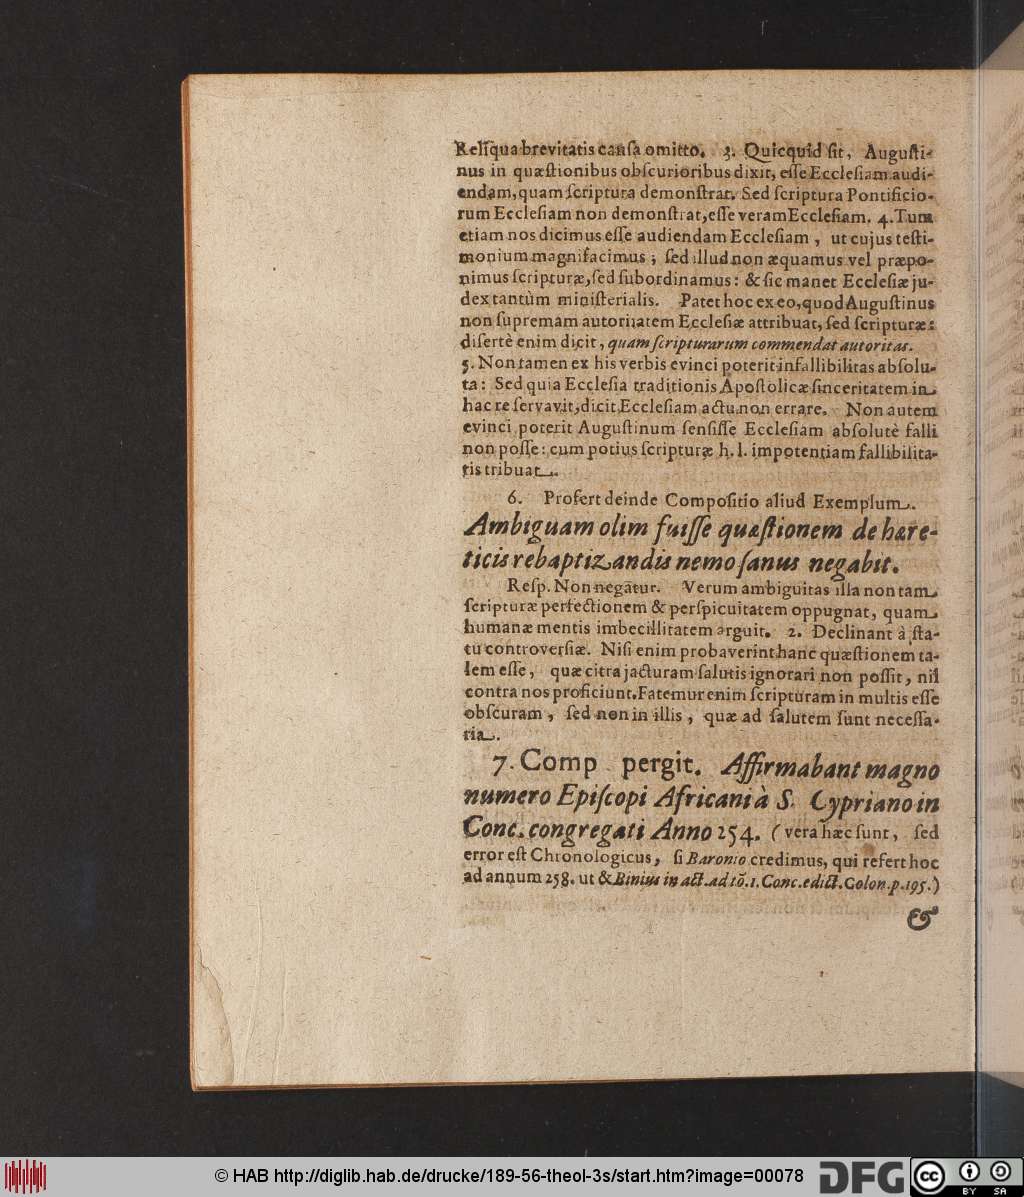 Reliqua brevitatis cauſa omitto. 3. Quicquid ſit, Auguſti-
nus in quæſtionibus obſcurioribus dixit, eſſe Eccleſiam audi-
endam, quam ſcriptura demonſtrat. Sed ſcriptura Pontificio-
rum Eccleſiam non demonſtrat, eſſe veram Eccleſiam. 4. Tum
etiam nos dicimus eſſe audiendam Eccleſiam, ut cujus teſti-
monium magnifacimus; ſed illud non æquamus vel præpo-
nimus ſcripturæ, ſed ſubordinamus: & ſic manet Eccleſiæ ju-
dex tantùm miniſterialis. Patet hoc ex eo, quod Auguſtinus
non ſupremam autoritatem Eccleſiæ attribuat, ſed ſcripturæ:
diſertè enim dicit, quam ſcripturarum commendat autoritas.
5. Non tamen ex his verbis evinci poterit infallibilitas abſolu-
ta: Sed quia Eccleſia traditionis Apoſtolicæ ſinceritatem in
hac re ſervavit, dicit Eccleſiam actu non errare. Non autem
evinci poterit Auguſtinum ſenſiſſe Eccleſiam abſolutè falli
non poſſe: cum potius ſcripturæ h. l. impotentiam fallibilita-
tis tribuat.
6. Profert deinde Compoſitio aliud Exemplum.
Ambiguam olim fuiſſe quæſtionem de hære-
ticis rebaptizandis nemo ſanus negabit.
Reſp. Non negatur. Verum ambiguitas illa non tam
ſcripturæ perfectionem & perſpicuitatem oppugnat, quam
humanæ mentis imbecillitatem arguit. 2. Declinant à ſta-
tu controverſiæ. Niſi enim probaverint hanc quæſtionem ta-
lem eſſe, quæ citra jacturam ſalutis ignorari non poſſit, nil
contra nos proficiunt. Fatemur enim ſcripturam in multis eſſe
obſcuram, ſed non in illis, quæ ad ſalutem ſunt neceſſa-
ria.
7. Comp pergit. Affirmabant magno
numero Epiſcopi Africani à S. Cypriano in
Conc. congregati Anno 254. (vera hæc ſunt, ſed
error eſt Chronologicus, ſi Baronio credimus, qui refert hoc
ad annum 258. ut & Binius in act. ad tō. 1. Conc. edict. Colon. p. 195.)
&
© HAB http://diglib.hab.de/drucke/189-56-theol-3s/start.htm?image=00078
DFG
cc
BY SA